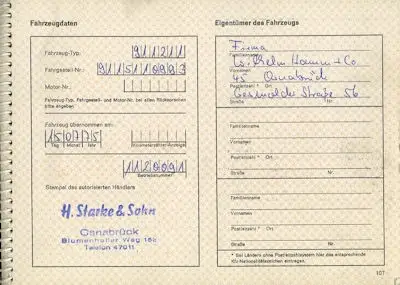 Fahrzeugdaten
Fahrzeug-Typ: 911211
Fahrgestell-Nr.: 9115110993
Motor-Nr.:
Fahrzeug-Typ, Fahrgestell- und Motor-Nr. bei allen Rückfragen
bitte angeben.
Fahrzeug übernommen am:
150775
Tag Monat Jahr Kilometerzähler-Anzeige
Betriebsnummer
Stempel des autorisierten Händlers
H. Starke & Sohn
Osnabrück
Blumenhaller Weg 152
Telefon 47011
Eigentümer des Fahrzeugs
Firma
Wilhelm Hamm & Co
Vornamen
45 Osnabrück
Postleitzahl * Ort
Straße 56
Straße Nr.
Familienname
Vornamen
Postleitzahl * Ort
Straße Nr.
Familienname
Vornamen
Postleitzahl * Ort
Straße Nr.
* Bei Ländern ohne Postleitzahlsystem hier das entsprechende
Kfz-Nationalitätszeichen eintragen.
107